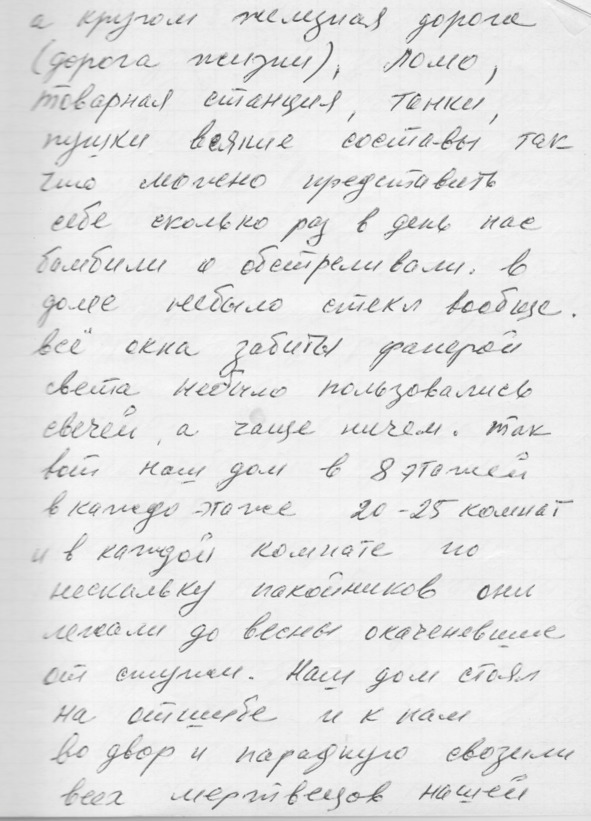 а кругом железная дорога
(дорога жизни), ломо,
товарная станция, танки,
пушки всякие составы так
что можно представить
себе сколько раз в день нас
бамбили и обстреливали. в
доме небыло стекл вообще.
всё окна забиты фанерой
света небыло пользовались
свечей, а чаще ничем. так
вот наш дом в 8 этажей
в каждо этаже 20-25 комнат
и в каждой комнате по
нескальку пакойников они
лежали до весны окаченевшие
от стужи. Наш дом стоял
на отшибе и к нам
во двор и парадную свозили
всех мертвецов нашей